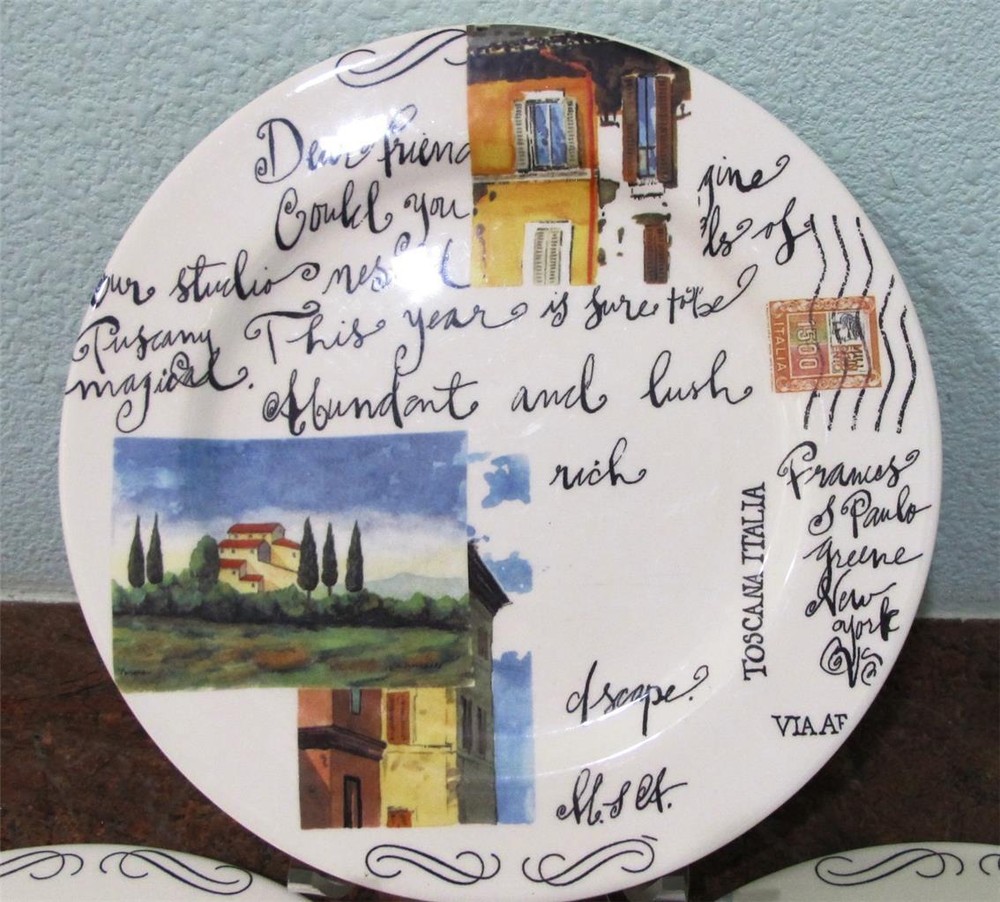 Dear friend
Could you gine
ls of
our studio nestled
Tuscany This year is sure to be
magical.
Abundant and lush
rich
dscape.
M. S A.
ITALIA
1500
TOSCANA ITALIA
Frances
S Paulo
Greene
New
York
US
VIA AF